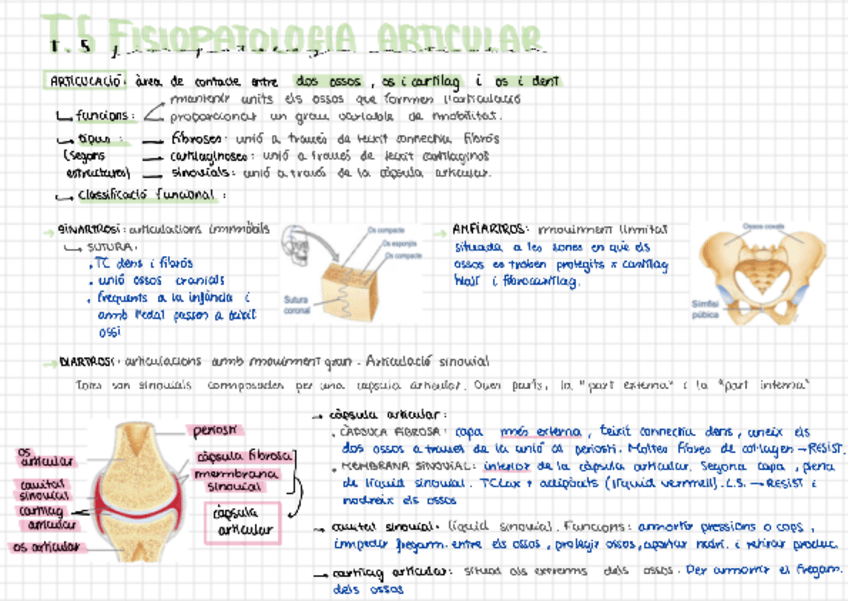 T.5 FISIOPATOLOGIA ARTICULAR
ARTICULACIÓ: àrea de contacte entre dos ossos, os i cartílag i os i dent
mantenir units els ossos que formen l'articulació
↳ funcions: proporcionar un grau variable de mobilitat.
↳ tipus: — fibroses: unió a través de teixit connectiu fibrós
(segons — cartilaginoses: unió a través de teixit cartilaginós
estructures) — sinovials: unió a través de la càpsula articular.
↳ classificació funcional:
→ SINARTROSI: articulacions immòbils
↳ SUTURA:
• TC dens i fibrós
• unió ossos cranials
• freqüents a la infància i
amb l'edat passen a teixit
ossi
Os compacte
Os esponjós
Os compacte
Sutura
coronal
→ AMFIARTROSI: moviment limitat
situada a les zones en què els
ossos es troben protegits x cartílag
hialí i fibrocartílag.
Ossos coxals
Símfisi
púbica
→ DIARTROSI: articulacions amb moviment gran. Articulació sinovial
Totes són sinovials composades per una càpsula articular. Dues parts, la "part externa" i la "part interna"
periosti
os
articular
càpsula fibrosa
membrana
sinovial
cavitat
sinovial
cartílag
articular
càpsula
articular
os articular
→ càpsula articular:
• CÀPSULA FIBROSA: capa més externa, teixit connectiu dens, uneix els
dos ossos a través de la unió al periosti. Moltes fibres de col·lagen → RESIST.
• MEMBRANA SINOVIAL: interior de la càpsula articular. Segona capa, plena
de líquid sinovial. TCLax + adipòcits (líquid vermell). L.S. → RESIST i
nodreix els ossos
→ cavitat sinovial: líquid sinovial. Funcions: amortir pressions o cops,
impedir fregam. entre els ossos, protegir ossos, aportar nutri. i retirar produc.
→ cartílag articular: situat als extrems dels ossos. Per amortir el fregam.
dels ossos